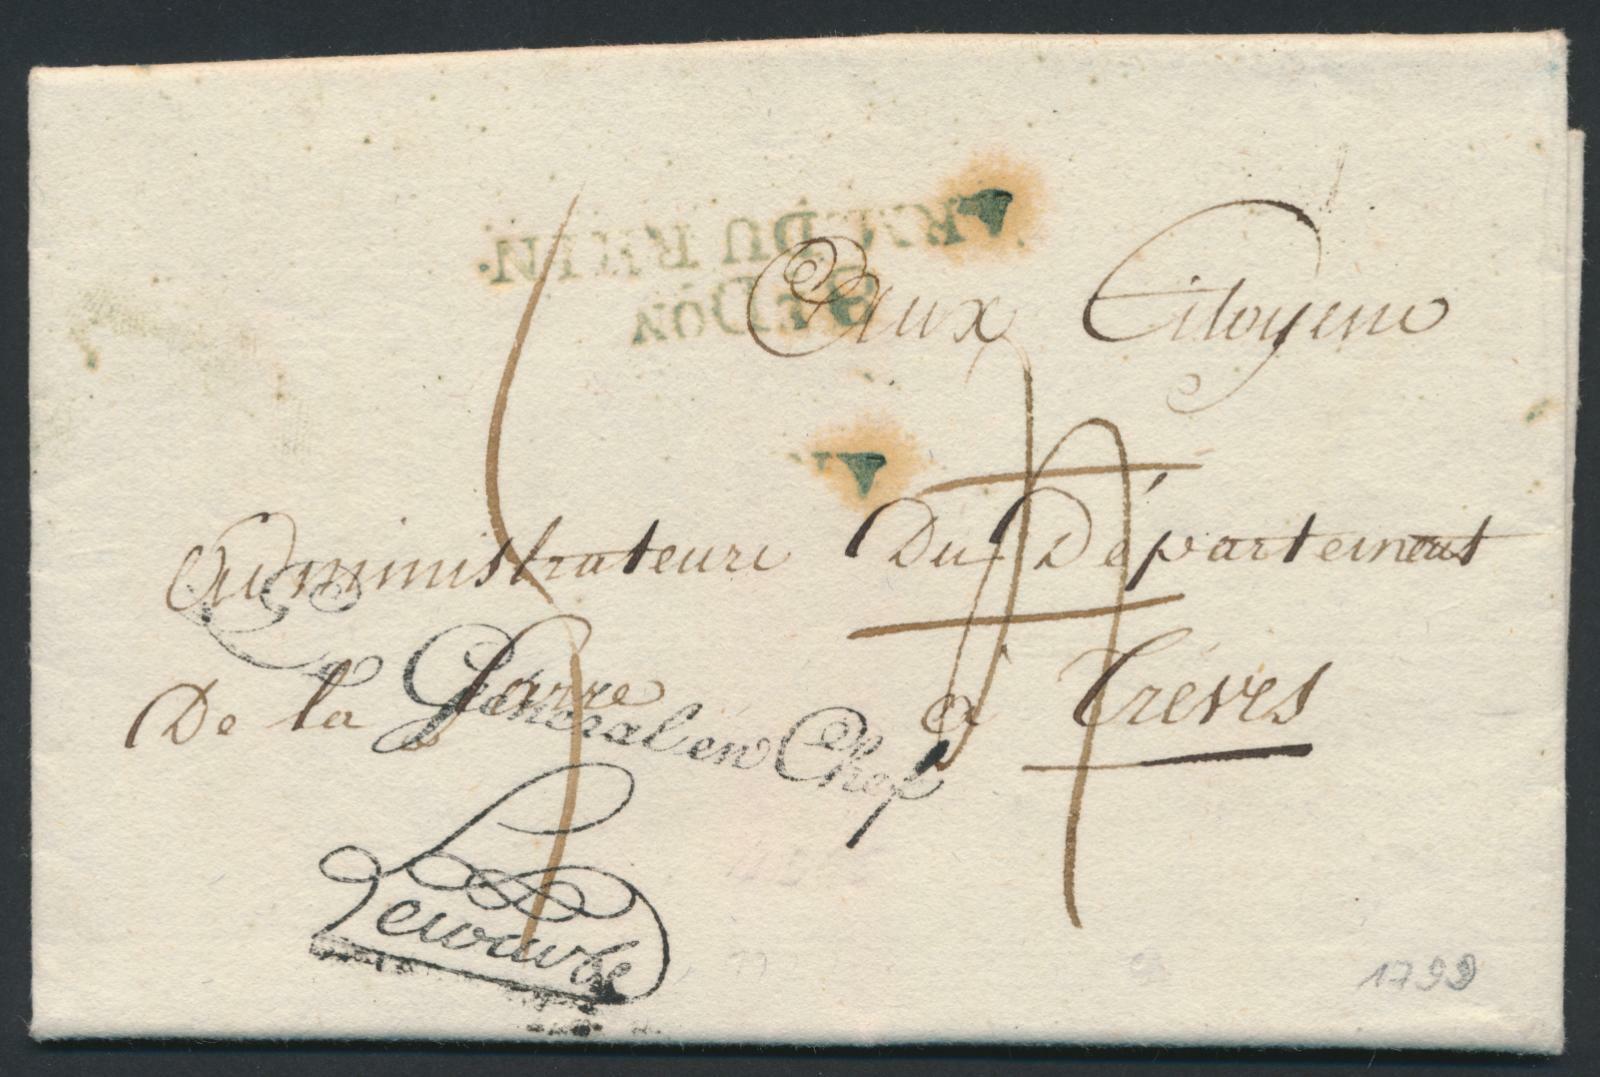 ARM. DU RHIN.
BAU DON
Aux Citoyens
Administrateurs Du Département
De la Sarre à Trèves
Le Général en Chef
Lecourbe
1799